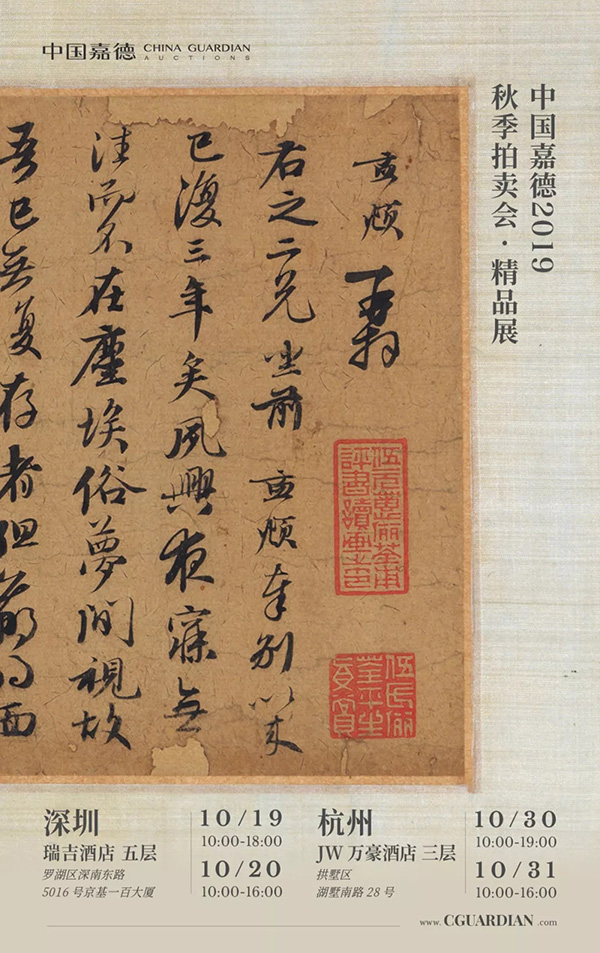 中国嘉德 CHINA GUARDIAN
AUCTIONS
中国嘉德2019
秋季拍卖会·精品展
孟頫再拜
右之二兄坐前孟頫奉别以来
已復三年矣夙興夜寐無
往而不在塵埃俗夢間視故
吾已無復存者但羸得面
伍氏儷荃平生真賞
深圳
瑞吉酒店 五层
罗湖区深南东路
5016 号京基一百大厦
10/19
10:00-18:00
10/20
10:00-16:00
杭州
JW 万豪酒店 三层
拱墅区
湖墅南路 28 号
10/30
10:00-19:00
10/31
10:00-16:00
www.CGUARDIAN.com